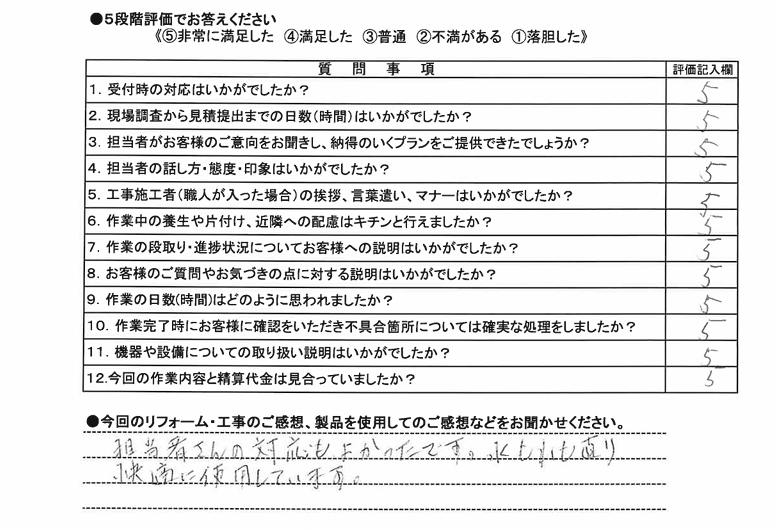 ●5段階評価でお答えください
《⑤非常に満足した ④満足した ③普通 ②不満がある ①落胆した》
質 問 事 項 評価記入欄
1. 受付時の対応はいかがでしたか? 5
2. 現場調査から見積提出までの日数(時間)はいかがでしたか? 5
3. 担当者がお客様のご意向をお聞きし、納得のいくプランをご提供できたでしょうか? 5
4. 担当者の話し方・態度・印象はいかがでしたか? 5
5. 工事施工者(職人が入った場合)の挨拶、言葉遣い、マナーはいかがでしたか? 5
6. 作業中の養生や片付け、近隣への配慮はキチンと行えましたか? 5
7. 作業の段取り・進捗状況についてお客様への説明はいかがでしたか? 5
8. お客様のご質問やお気づきの点に対する説明はいかがでしたか? 5
9. 作業の日数(時間)はどのように思われましたか? 5
10. 作業完了時にお客様に確認をいただき不具合箇所については確実な処理をしましたか? 5
11. 機器や設備についての取り扱い説明はいかがでしたか? 5
12.今回の作業内容と精算代金は見合っていましたか? 5
●今回のリフォーム・工事のご感想、製品を使用してのご感想などをお聞かせください。
担当者さんの対応もよかったです。水もれも直り
快適に使用しています。